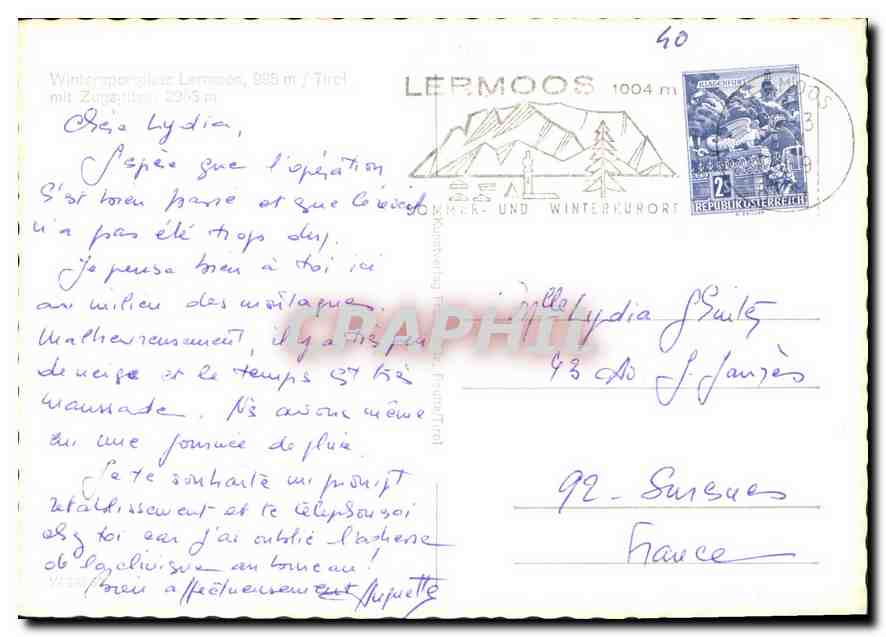 40
Wintersportplatz Lermoos, 995 m / Tirol
mit Zugspitze 2963 m
LERMOOS 1004 m
SOMMER- UND WINTERKURORT
KLAGENFURT
2S
REPUBLIK ÖSTERREICH
Chère Lydia,
J'espère que l'opération
s'est bien passée et que le réveil
n'a pas été trop dur.
Je pense bien à toi ici
au milieu des montagnes.
Malheureusement, il y a très peu
de neige et le temps est très
maussade. Ns avons même
eu une journée de pluie.
Je te souhaite un prompt
rétablissement et te téléphonerai
chez toi car j'ai oublié l'adresse
de la clinique au bureau!
Bien affectueusement Huguette
Mlle Lydia
43 Av J. Jaurès
92 - Suresnes
France
CPAPHIL